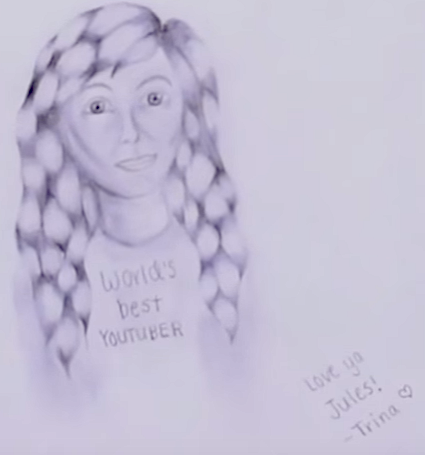 World's
best
YOUTUBER
Love ya
Jules!
-Trina ♡